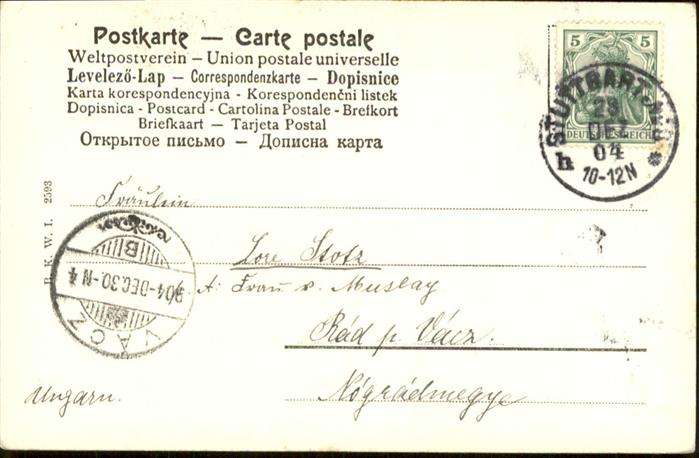 Postkarte – Carte postale
Weltpostverein – Union postale universelle
Levelező-Lap – Correspondenzkarte – Dopisnice
Karta korespondencyjna - Korespondenční listek
Dopisnica - Postcard - Cartolina Postale - Brefkort
Briefkaart – Tarjeta Postal
Открытое письмо – Дописна карта
5 5
DEUTSCHES REICH
STUTTGART
04
10-12N
h
B. K. W. I. 2593
Fräulein
Lore Stotz
Frau v. Muslay
Rád p. Vácz.
Nógrádmegye
Ungarn.
904-DEC.30-N4
B
VÁCZ